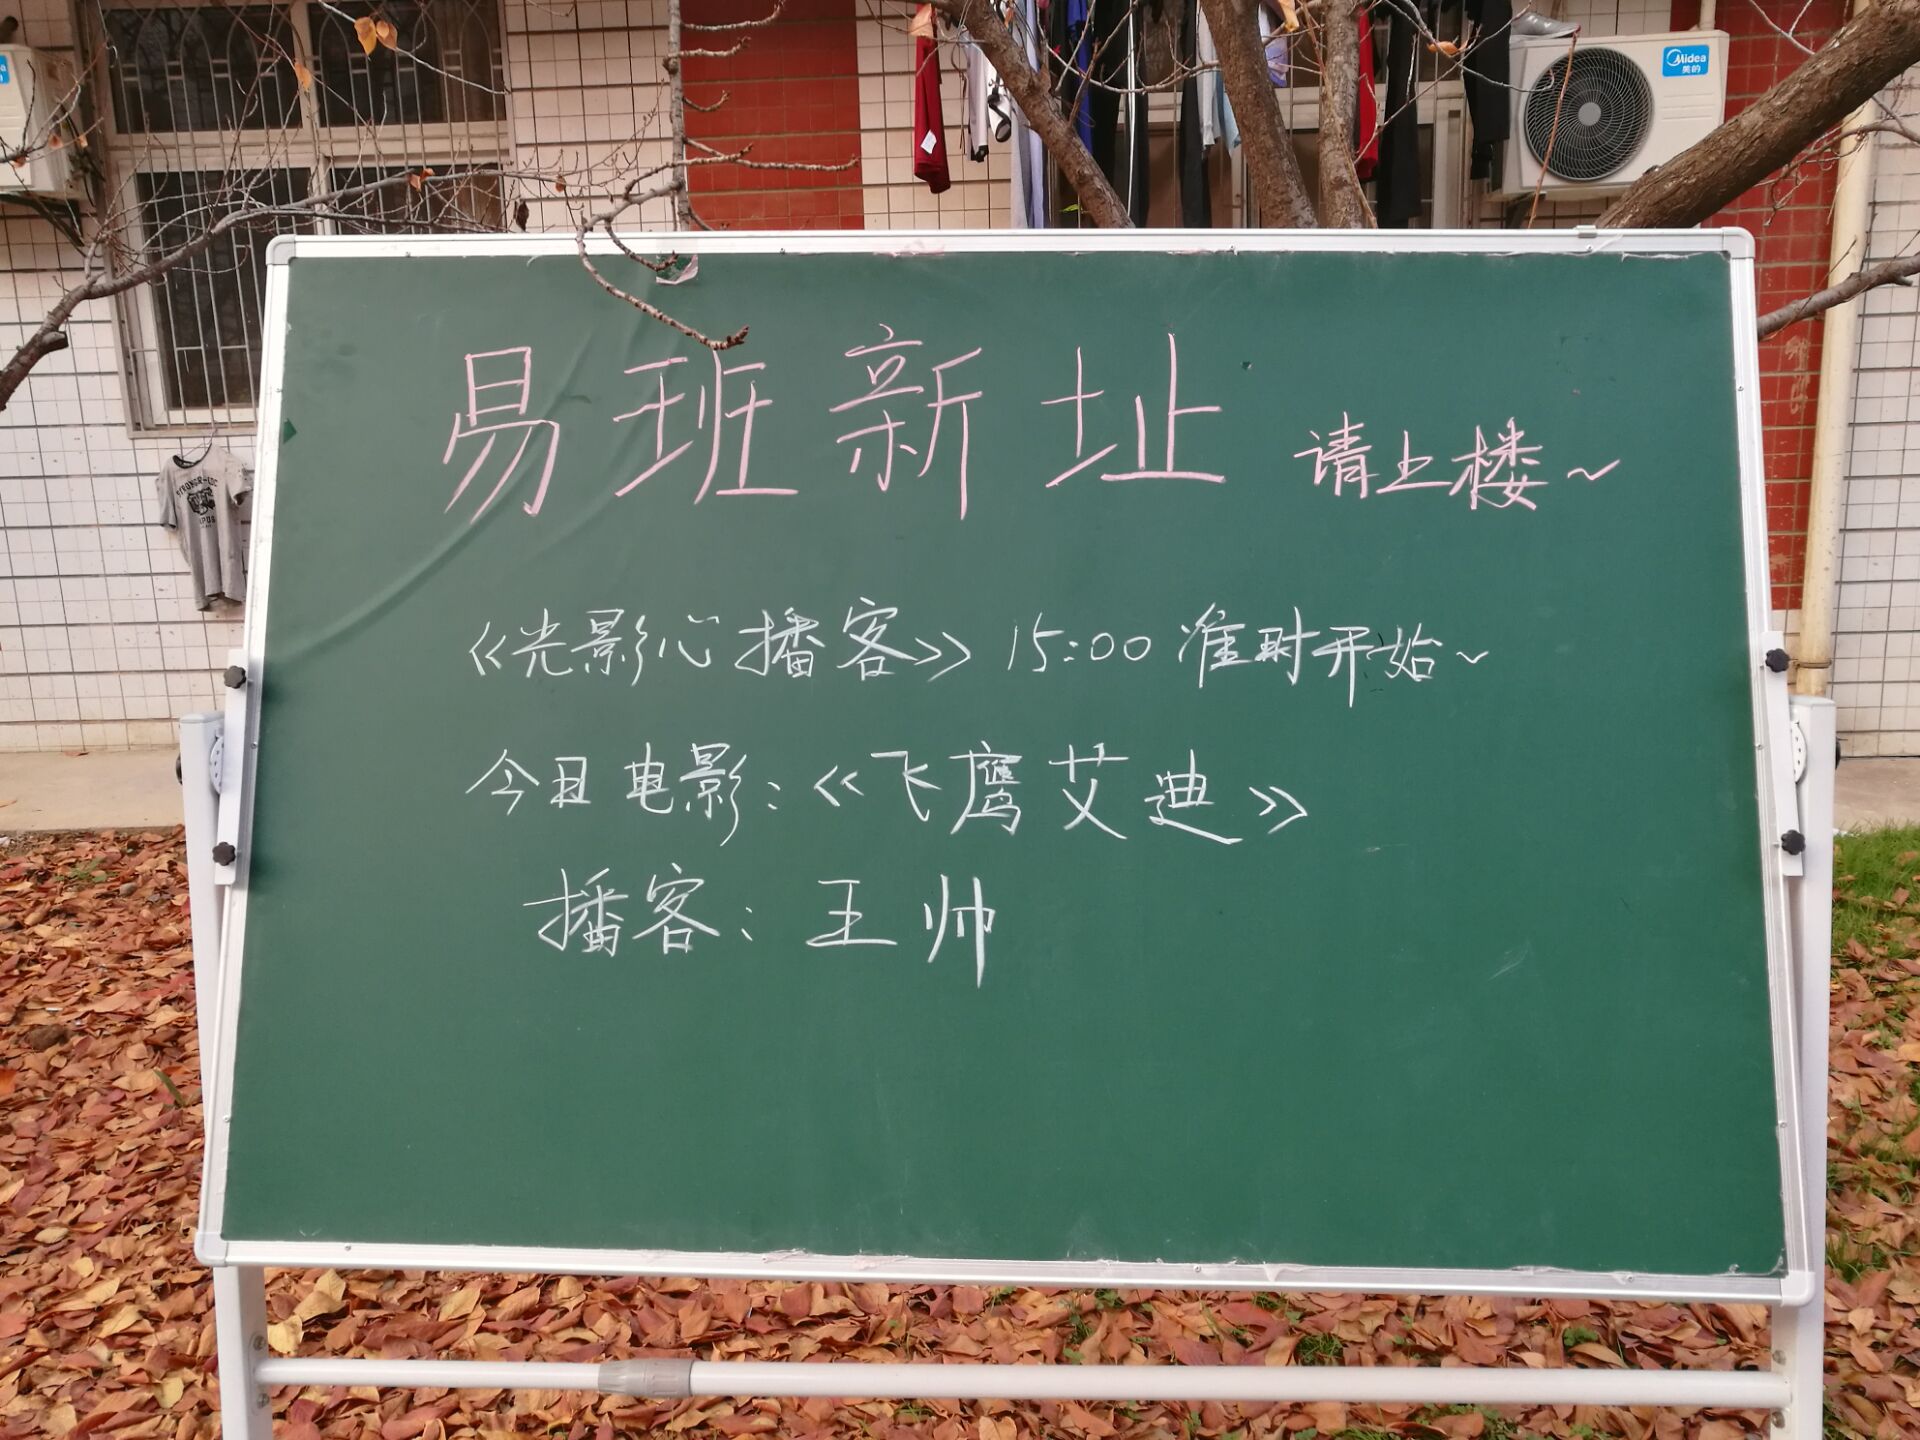 Midea
美的
易班新址 请上楼~
《光影心播客》 15:00 准时开始~
今日电影:《飞鹰艾迪》
播客:王帅